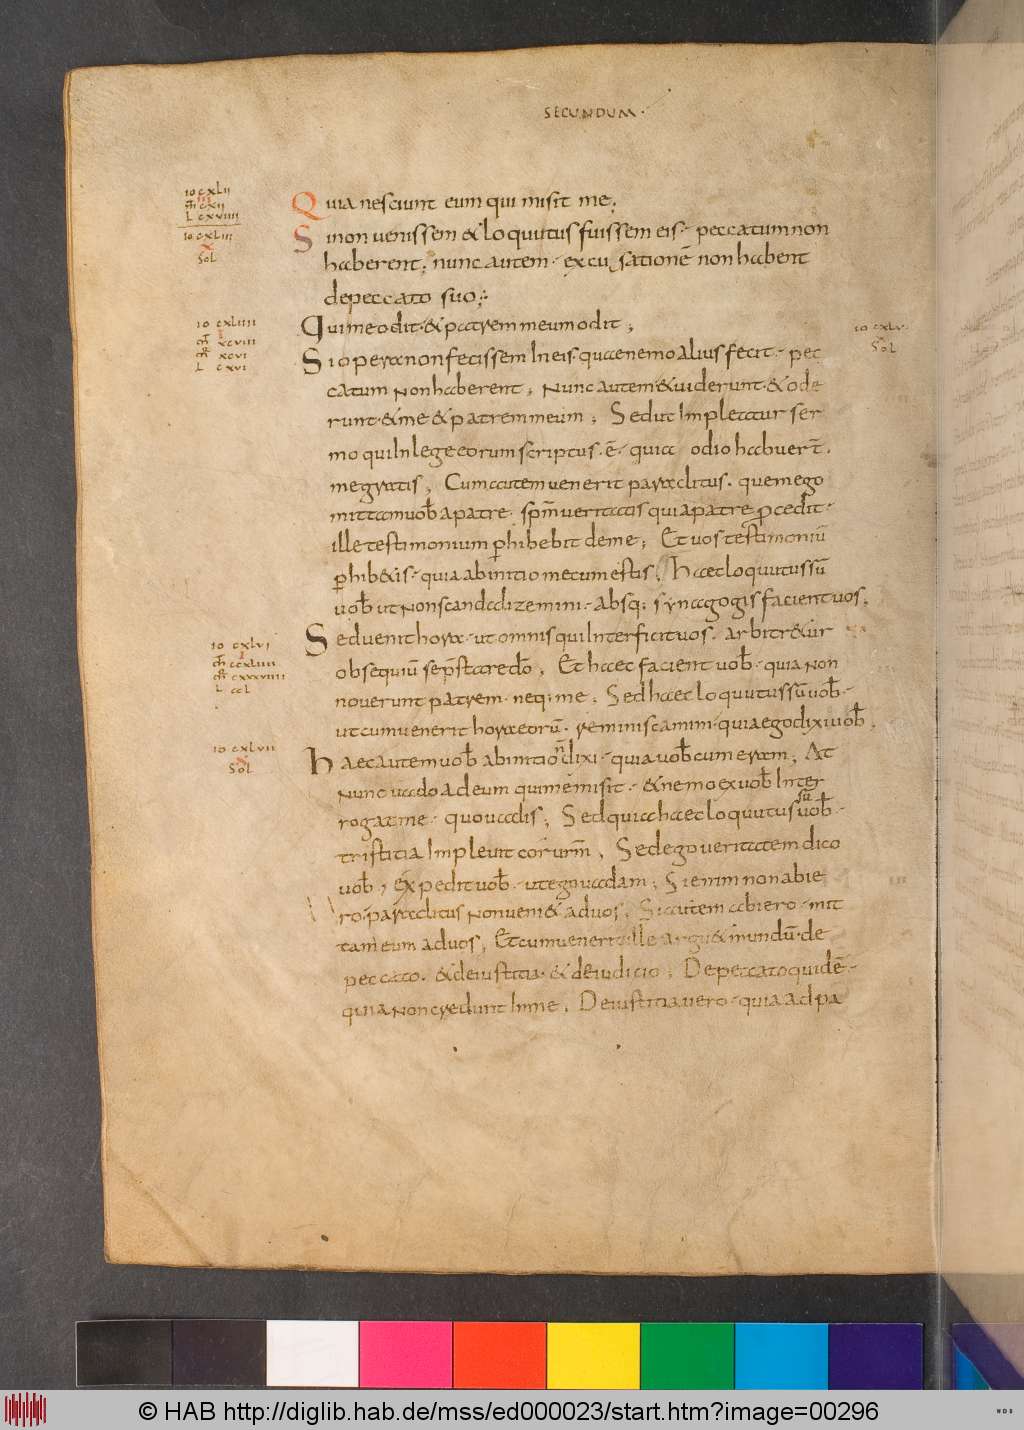 SECUNDUM·
io cxlii
iii
mͬ cxii
L cxviiii
io cxliii
x
Sol
Quia nesciunt eum qui misit me;
Si non venissem & loquutus fuissem eis· peccatum non
haberent; nunc autem· excusationē non habent
de peccato suo;
io cxliiii
i
xcviii
xcvi
L cxvi
Qui me odit· & patrem meum odit;
io cxlv
Sol
Si opera non fecissem In eis· quae nemo alius fecit· pec
catum non haberent; Nunc autem & uiderunt· & ode
runt· & me & patrem meum; Sed ut Impleatur ser
mo qui In lege eorum scriptus· ē· quia odio habuer̄t·
me gratis; Cum autem uenerit paraclitus· quem ego
mittam uob̄ a patre· spm̄ ueritatis qui a patre procedit·
ille testimonium phibebit de me; Et uos testimoniū
phib&is· quia ab initio mecum estis; Haec loquutus sū
uob̄ ut non scandadizemini· absq; synagogis facient uos;
io cxlvi
i
ccxliiii
cxxxviiii
L ccl
Sed uenit hora· ut omnis qui Interficit uos· arbitr&ur
obsequiū se pstare do; Et haec facient uob̄· quia non
nouerunt patrem· neq; me; Sed haec loquutus sū uob̄·
ut cum uenerit hora eorū· reminiscamini· quia ego dixi uob̄;
io cxlvii
x
Sol
Haec autem uob̄ ab initio n̄ dixi· quia uob̄cum eram; At
nunc uado ad eum qui me misit· & nemo ex uob̄ Inter
rogat me· quo uadis; Sed quia haec loquutus sū uob̄·
tristitia Impleuit cor urm̄; Sed ego ueritatem dico
uob̄; expedit uob̄· ut ego uadam; Si enim non abie
ro· paraclitus non ueni& ad uos; Si autem abiero· mit
tam eum ad uos; Et cum uenerit ille argu& mundū· de
peccato· & de iustitia· & de iudicio; De peccato quidē·
quia non credunt In me; De iustitia uero· quia ad pa
© HAB http://diglib.hab.de/mss/ed000023/start.htm?image=00296